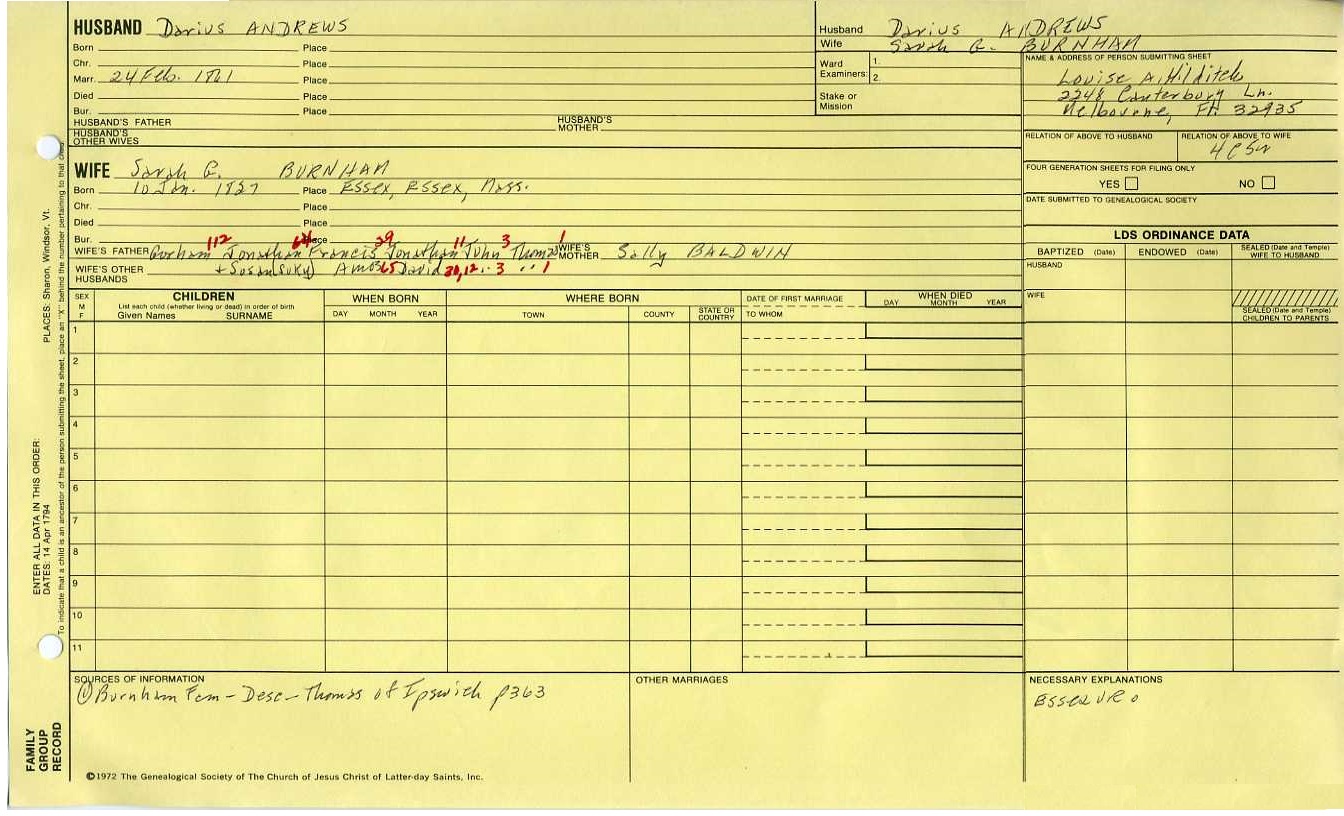 HUSBAND Darius ANDREWS
Born Place
Chr. Place
Marr. 24 Feb. 1861 Place
Died Place
Bur. Place
HUSBAND'S FATHER HUSBAND'S MOTHER
HUSBAND'S OTHER WIVES
Husband Darius ANDREWS
Wife Sarah G. BURNHAM
Ward Examiners: 1.
2.
Stake or Mission
NAME & ADDRESS OF PERSON SUBMITTING SHEET
Louise A. Hilditch
2248 Canterbury Ln.
Melbourne, Fl. 32935
RELATION OF ABOVE TO HUSBAND RELATION OF ABOVE TO WIFE
4C5R
FOUR GENERATION SHEETS FOR FILING ONLY
YES NO
DATE SUBMITTED TO GENEALOGICAL SOCIETY
WIFE Sarah G. BURNHAM
Born 10 Jan. 1827 Place Essex, Essex, Mass.
Chr. Place
Died Place
Bur. Place
112 64 29 11 3 1
WIFE'S FATHER Gorham Jonathan Francis Jonathan John Thomas WIFE'S MOTHER Sally BALDWIN
WIFE'S OTHER HUSBANDS + Susan (Suky) Amos 65 David 30,12 .. 3 .. 1
LDS ORDINANCE DATA
BAPTIZED (Date) ENDOWED (Date) SEALED (Date and Temple) WIFE TO HUSBAND
HUSBAND
WIFE
SEALED (Date and Temple) CHILDREN TO PARENTS
SEX M F
CHILDREN
List each child (whether living or dead) in order of birth
Given Names SURNAME
WHEN BORN
DAY MONTH YEAR
WHERE BORN
TOWN COUNTY STATE OR COUNTRY
DATE OF FIRST MARRIAGE
TO WHOM
WHEN DIED
DAY MONTH YEAR
1
2
3
4
5
6
7
8
9
10
11
SOURCES OF INFORMATION
① Burnham Fam - Desc - Thomas of Ipswich p363
OTHER MARRIAGES
NECESSARY EXPLANATIONS
Essex VR
©1972 The Genealogical Society of The Church of Jesus Christ of Latter-day Saints, Inc.
FAMILY GROUP RECORD
ENTER ALL DATA IN THIS ORDER:
DATES: 14 Apr 1794
PLACES: Sharon, Windsor, Vt.
To indicate that a child is an ancestor of the person submitting the sheet, place an "X" behind the number pertaining to that child